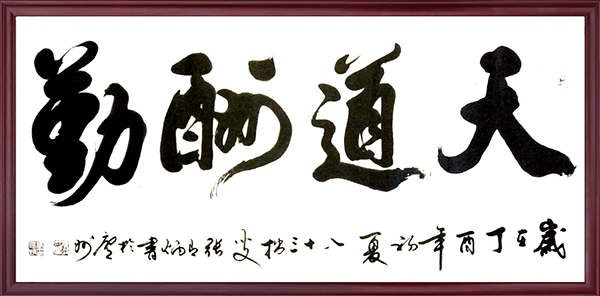 天道酬勤
歲在丁酉年初夏八十三叟張炳書於廬州